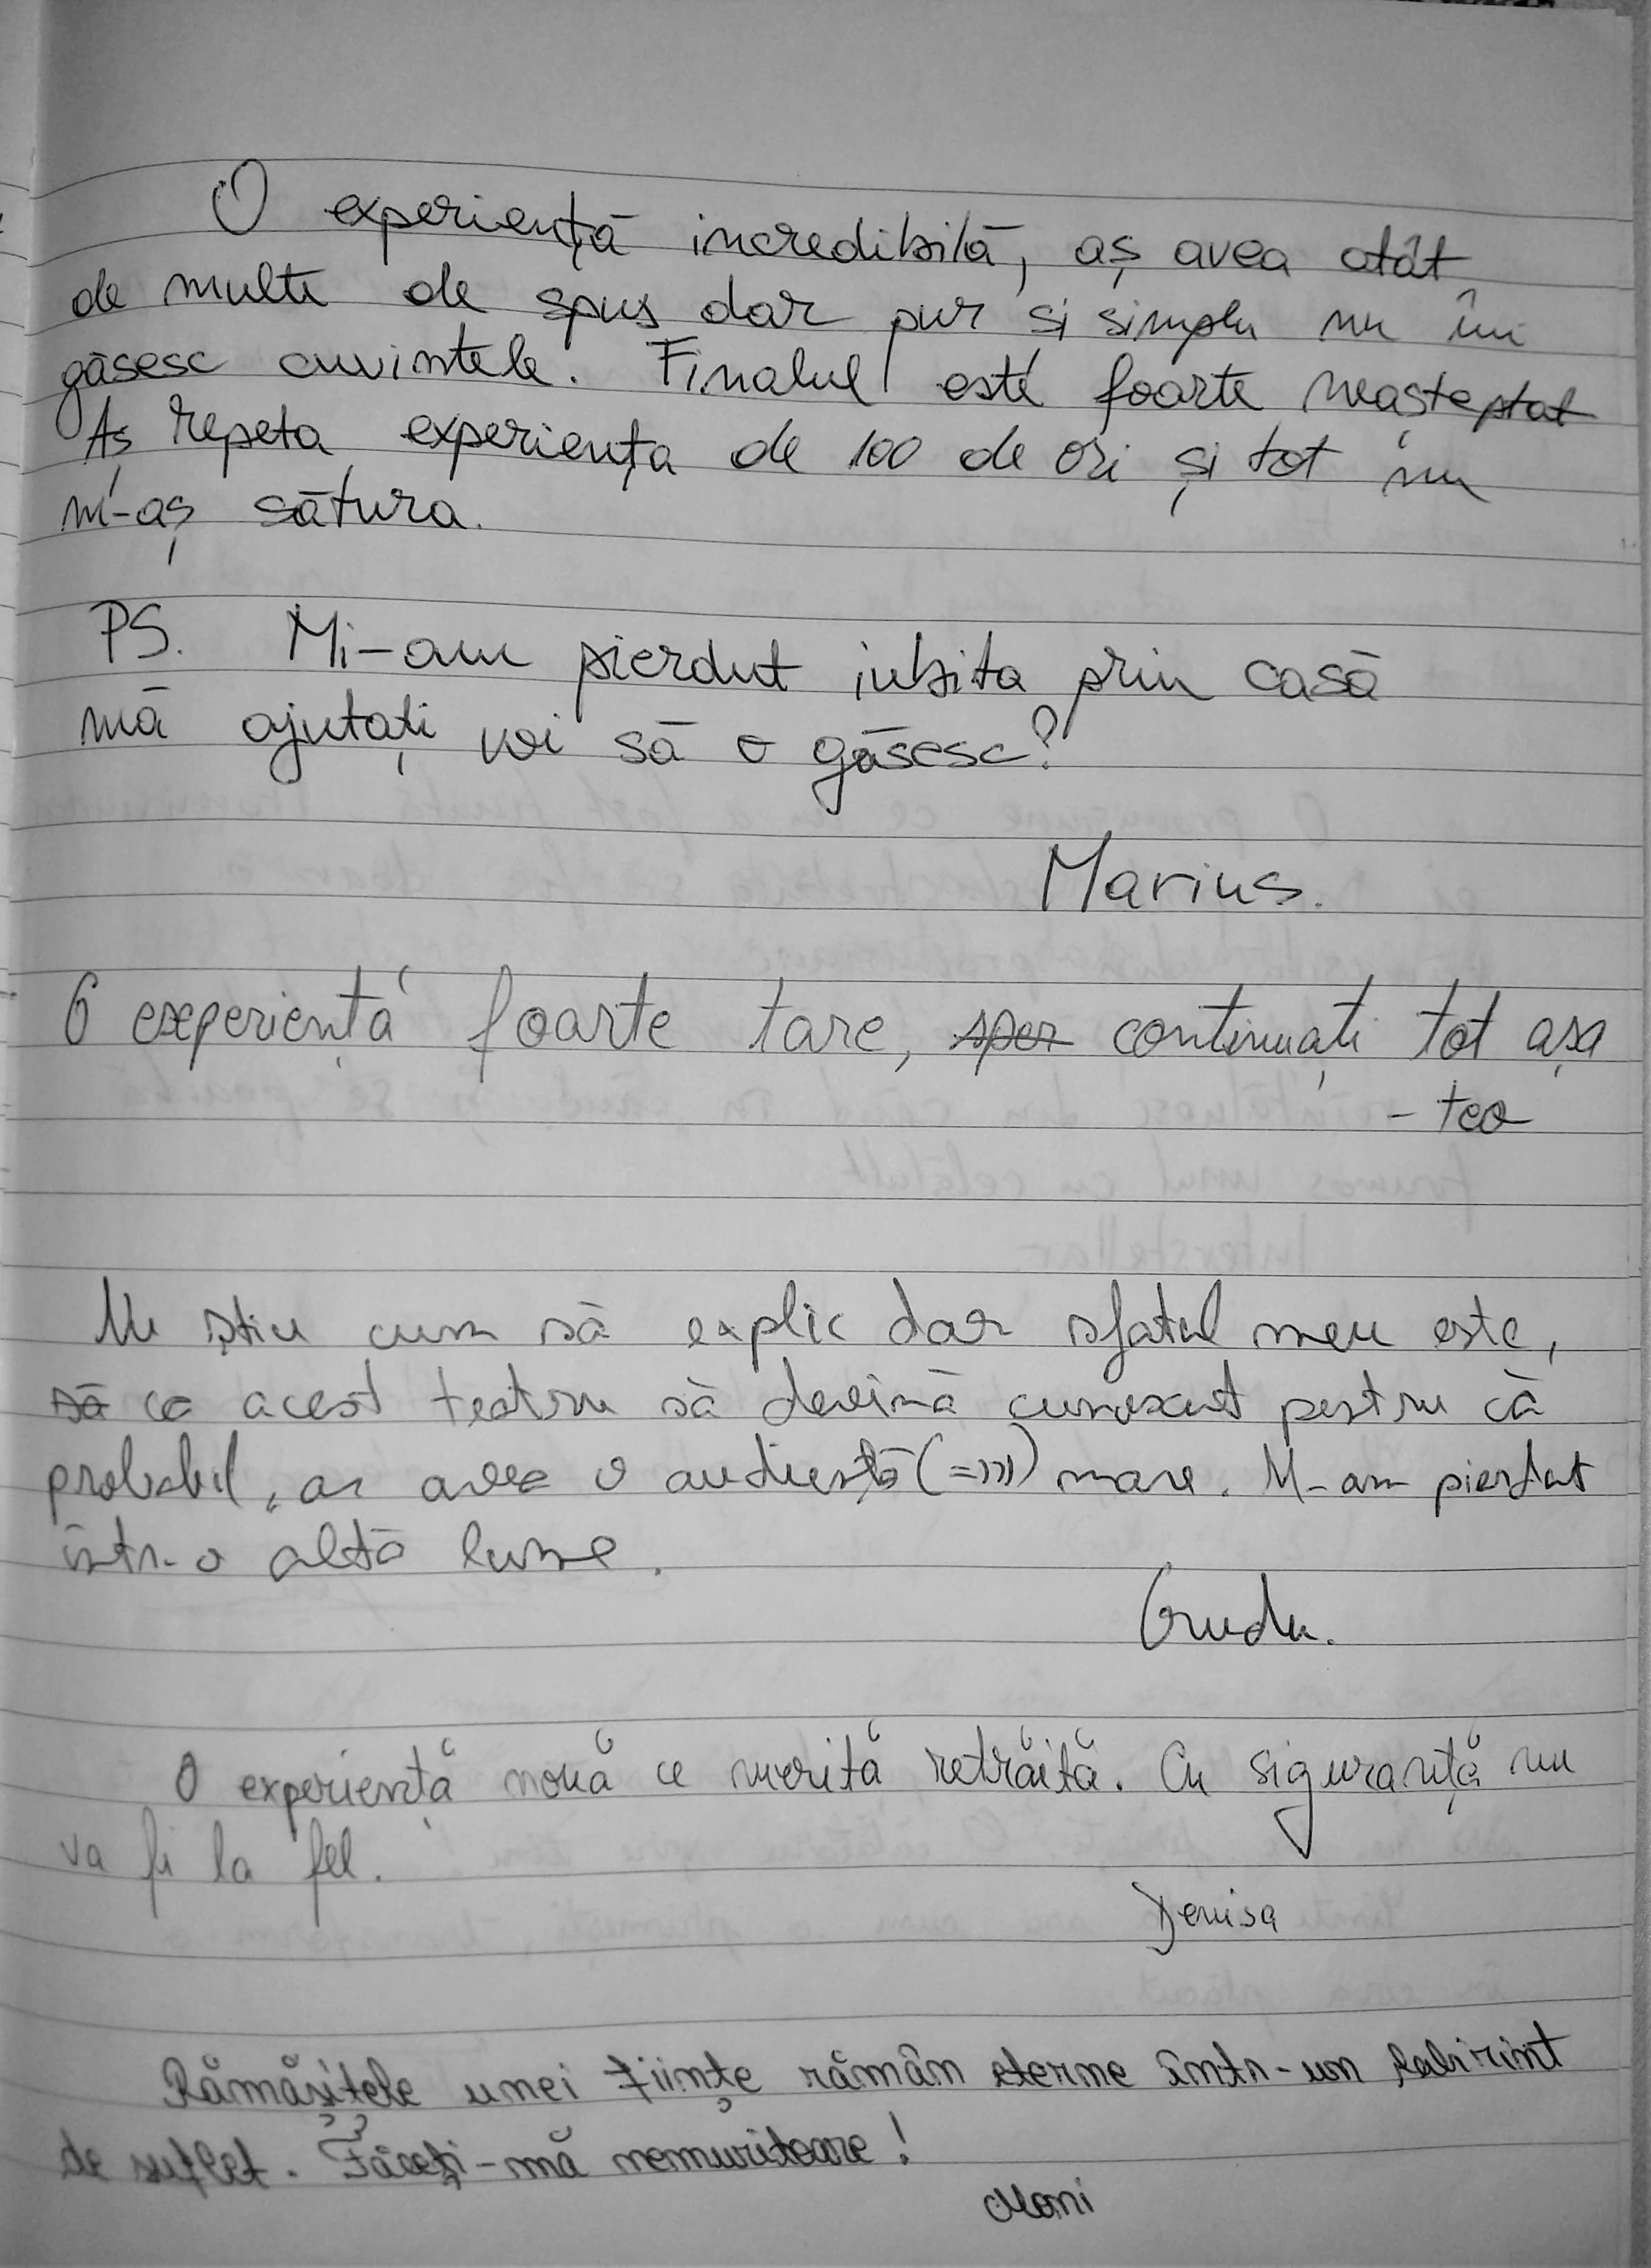 O experiență incredibilă, aș avea atât
de multe de spus dar pur si simplu nu îmi
găsesc cuvintele. Finalul este foarte neașteptat
Aș repeta experiența de 100 de ori și tot nu
m-aș sătura.
PS. Mi-am pierdut iubita prin casă
mă ajutați voi să o găsesc?
Marius.
O experiență foarte tare, sper continuați tot așa
- teo
Nu știu cum să explic dar sfatul meu este,
să ca acest teatru să devină cunoscut pentru că
probabil, ar avea o audiență (=)))) mare. M-am pierdut
într-o altă lume.
O experiență nouă ce merită retrăită. Cu siguranță nu
va fi la fel.
Denisa
Rămășițele unei ființe rămân eterne într-un labirint
de suflet. Făceți-mă nemuritoare!
Moni